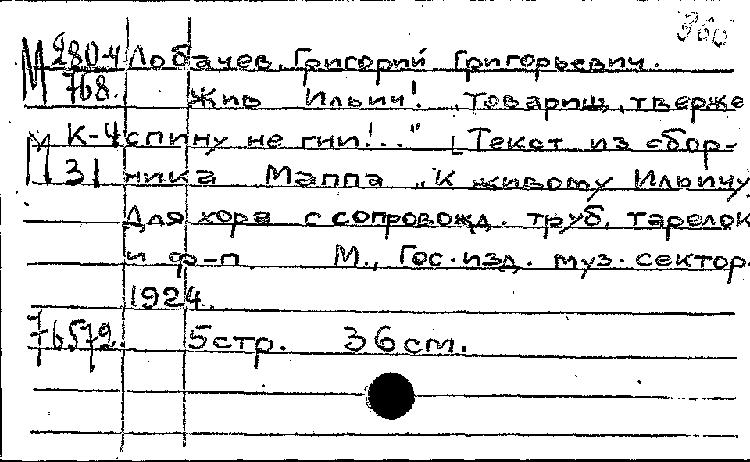 360
М 280-4 Лобачев, Григорий Григорьевич.
768. Жив Ильич! „Товарищ, тверже
М К-4 спину не гни!.." [Текст из сбор-
31 ника Маппа „К живому Ильичу
Для хора с сопровожд. труб, тарелок
и ф-п. М., Гос. изд. муз. сектор.
1924.
76572. 5 стр. 36 см.